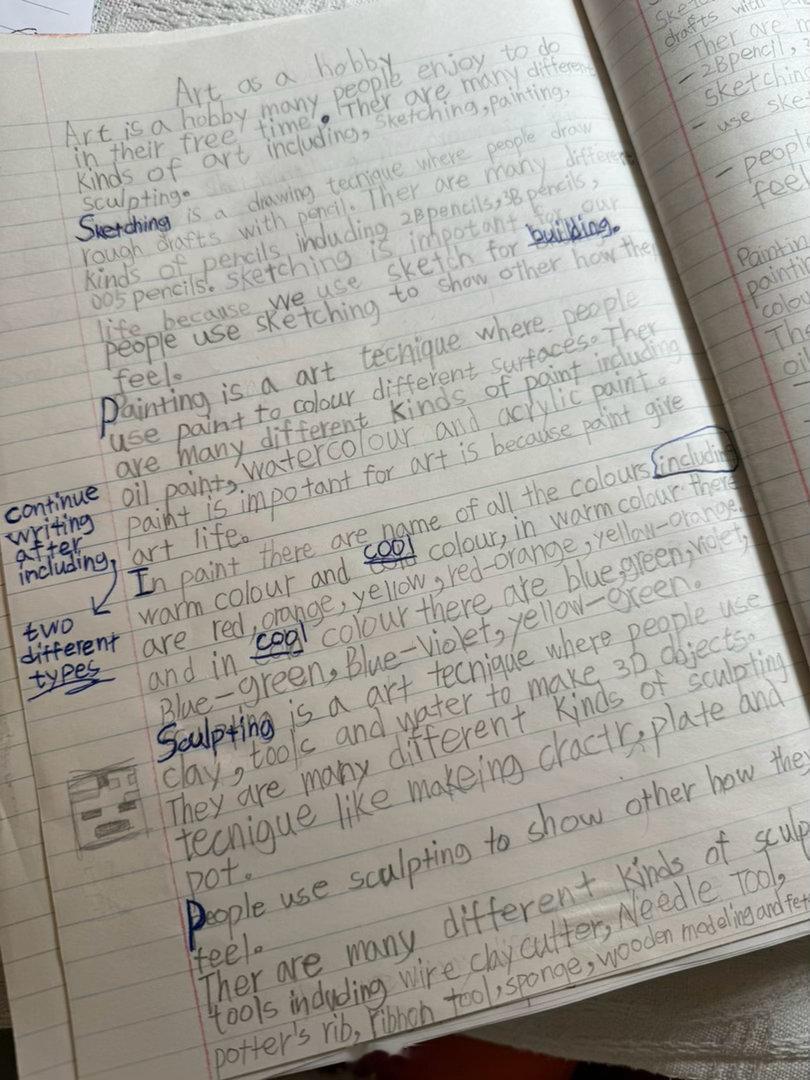 Art as a hobby
Art is a hobby many people enjoy to do
in their free time. Ther are many different
kinds of art including, sketching, painting,
sculpting.
Sketching is a drawing tecnique where people draw
rough drafts with pencil. Ther are many different
kinds of pencils including 2B pencils, 3B pencils,
005 pencils. sketching is impotant for our
life because we use sketch for building.
people use sketching to show other how they
feel.
Painting is a art tecnique where people
use paint to colour different surfaces. Ther
are many different kinds of paint including
oil paint, watercolour and acrylic paint.
paint is impotant for art is because paint give
art life.
In paint there are name of all the colours including
warm colour and cool colour, in warm colour there
are red, orange, yellow, red-orange, yellow-orange,
and in cool colour there are blue, green, violet,
Blue-green, Blue-Violet, yellow-green.
Sculpting is a art tecnique where people use
clay, tools and water to make 3D objects.
They are many different kinds of sculpting
tecnigue like makeing cractr, plate and
pot.
People use sculpting to show other how they
feel.
Ther are many different kinds of sculp
tools including wire clay cutter, Needle Tool,
potter's rib, ribbon tool, sponge, wooden modeling and fet
continue
writing
after
including,
two
different
types
sket
drafts with
Ther are m
- 2B pencil,
sketchin
- use ske
- people
feel
Painting
painting
colo
Th
oil